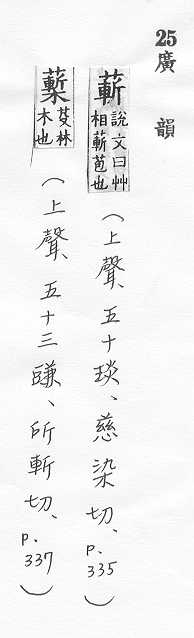 25 廣韻
蔪 說文曰艸相蔪苞也(上聲、五十琰、慈染切、p.335)
芟林木也(上聲、五十三豏、所斬切、p.337)